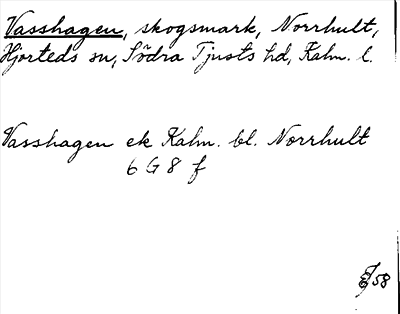 Vasshagen, skogsmark, Norrhult,
Hjorteds sn, Södra Tjusts hd, Kalm. l.
Vasshagen ek Kalm. bl. Norrhult
6 G 8 f
58